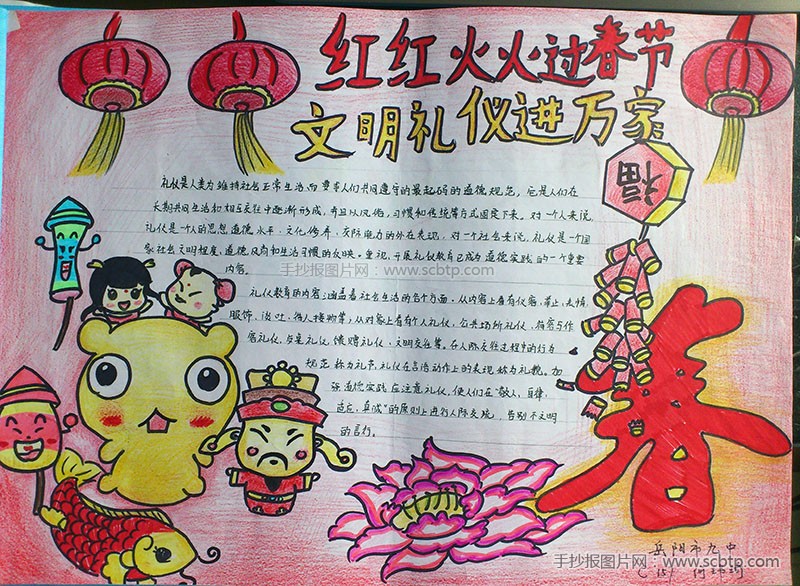 红红火火过春节
文明礼仪进万家
福
礼仪是人类为维持社会正常生活而要求人们共同遵守的最起码的道德规范，它是人们在
长期共同生活和相互交往中逐渐形成，并且以风俗、习惯和传统等方式固定下来。对一个人来说，
礼仪是一个人的思想道德水平、文化修养、交际能力的外在表现，对一个社会来说，礼仪是一个国
家社会文明程度、道德风尚和生活习惯的反映。重视、开展礼仪教育已成为道德实践的一个重要
内容。
手抄报图片网：www.scbtp.com
礼仪教育的内容涵盖着社会生活的各个方面，从内容上看有仪容、举止、表情、
服饰、谈吐、待人接物等；从对象上看有个人礼仪、公共场所礼仪、待客与作
客礼仪、与是礼仪、馈赠礼仪、文明交往等。在人际交往过程中的行为
规范称为礼节，礼仪在言语动作上的表现称为礼貌。加
强道德实践应注意礼仪，使人们在"敬人、自律、
适应、真诚"的原则上进行人际交统，告别不文明
的言行。
春
岳阳市九中
手抄报图片网：www.scbtp.com